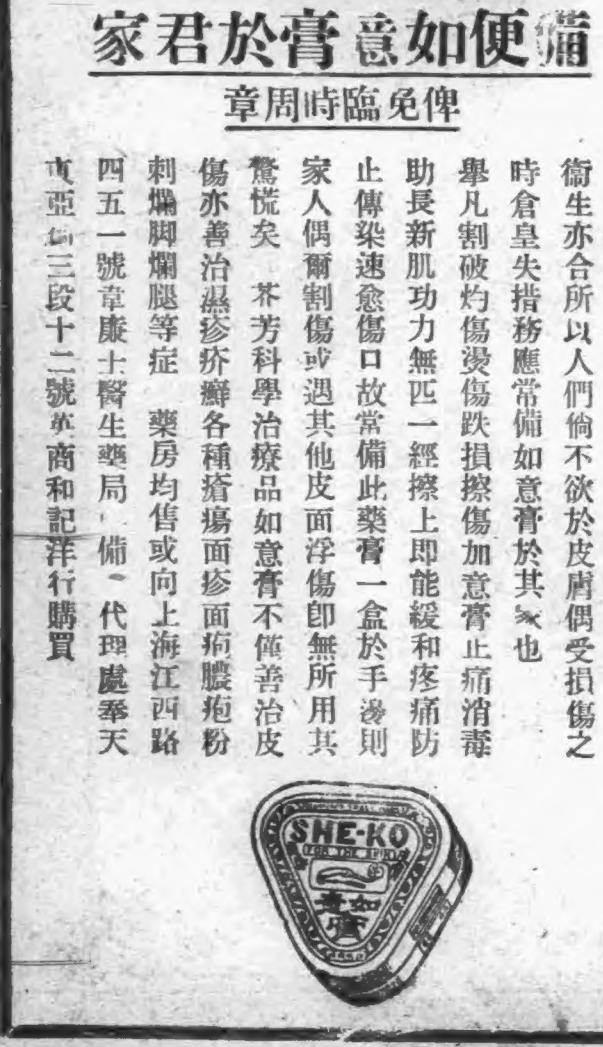 備便如意膏於君家
俾免臨時周章
衞生亦合所以人們倘不欲於皮膚偶受損傷之
時倉皇失措務應常備如意膏於其家也
舉凡割破灼傷燙傷跌損擦傷加意膏止痛消毒
助長新肌功力無匹一經擦上即能緩和疼痛防
止傳染速愈傷口故常備此藥膏一盒於手邊則
家人偶爾割傷或遇其他皮面浮傷卽無所用其
驚慌矣 芥芳科學治療品如意膏不僅善治皮
傷亦善治濕疹疥癬各種瘡瘍面疹面疱膿疱粉
刺爛脚爛腿等症 藥房均售或向上海江西路
四五一號韋廉士醫生藥局 備 代理處奉天
亞 三段十二號英商和記洋行購買
SHE-KO
FOR THE SKIN
如意膏